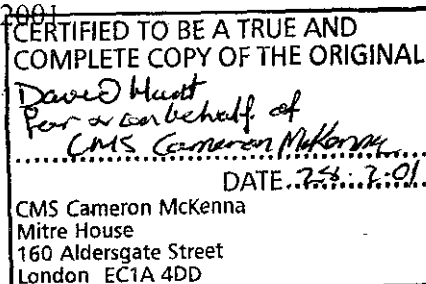 2001
CERTIFIED TO BE A TRUE AND
COMPLETE COPY OF THE ORIGINAL
David Hunt
For & on behalf of
CMS Cameron McKenna
DATE 28.2.01
CMS Cameron McKenna
Mitre House
160 Aldersgate Street
London EC1A 4DD